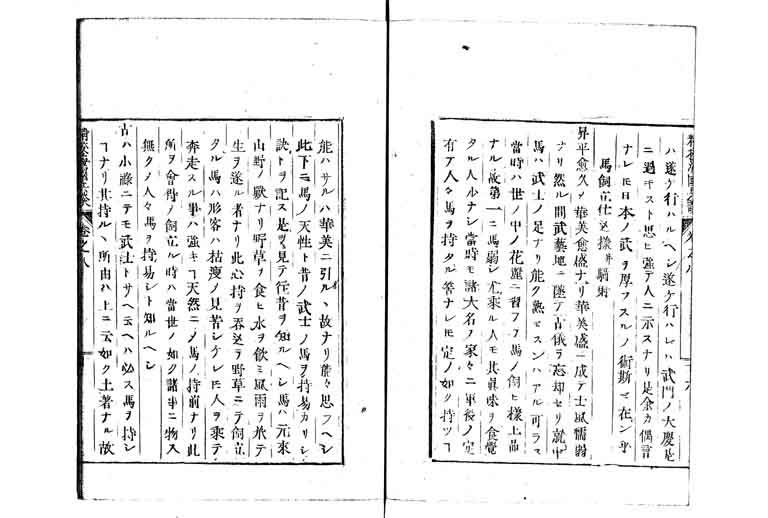 ハ遂ケ行ハルヘシ遂ケ行ハレハ武門ノ大慶是
ニ過キスト思ヒ強テ人ニ示スナリ是余カ偶言
ナレモ日本ノ武ヲ厚フスルノ術斯ニ在ン乎
馬飼立仕込様并騎射
昇平愈久ノ華美愈盛ナリ華美盛ニ成テ士風懦弱
ナリ然ル間武藝地ニ墜テ古俄ヲ忘却セリ就中
馬ハ武士ノ足ナリ能ク熟セスンハアル可ラス
當時ハ世ノ中ノ花麗ニ習フテ馬ノ飼ヒ様上品
ナル故第一ニ馬弱シ尤乗ル人モ其眞味ヲ食覺
タル人少ナシ當時モ諸大名ノ家々ニ軍役ノ定
有テ人々馬ヲ持タル筈ナレモ定ノ如ク持ツ
能ハサルハ華美ニ引ルヽ故ナリ能々思フヘシ
此下ニ馬ノ天性ト昔ノ武士ノ馬ヲ持易カリシ
訣トヲ記ス是ヲ見テ徃昔ヲ知ルヘシ馬ハ元来
山野ノ獣ナリ野草ヲ食ヒ水ヲ飲ミ風雨ヲ凌テ
生ヲ遂ル者ナリ此心持ヲ呑込テ野草ニテ飼立
タル馬ハ形容ハ枯痩ノ見苦シケレモ人ヲ乗テ
奔走スル事ハ強キ天然ニメ馬ノ持前ナリ此
所ヲ會得ノ飼立ル時ハ當世ノ如ク諸事ニ物入
無クノ人々馬ヲ持易シト知ルヘシ
古ハ小禄ニテモ武士トサヘ云ヘハ必ス馬ヲ持シ
ナリ其持ルヽ所由ハ上ニ云如ク土著ナル故
巻之八